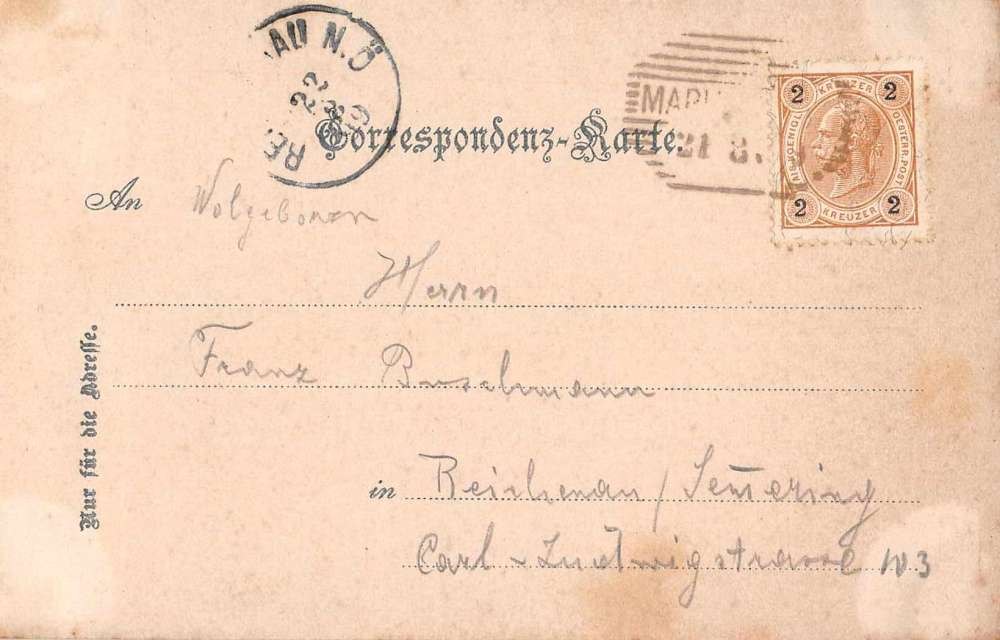 AU N.Ö
RE
22 8 99
MARI
21 8
Correspondenz-Karte.
2 KREUZER 2
KAIS. KOENIGL. OESTERR. POST
2 KREUZER 2
An Wolgeboren
Herrn
Franz Buschmann
in Reichenau / Sem̄ering
Carl-Ludwigstrasse N3
Nur für die Adresse.